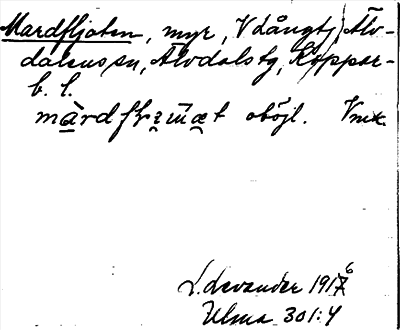 Mardfljoten, myr, V Långtj. Älv-
dalens sn, Älvdals tg, Koppar-
b. l.
oböjl. Vmk.
L. Levander 1916
Ulma 301:4